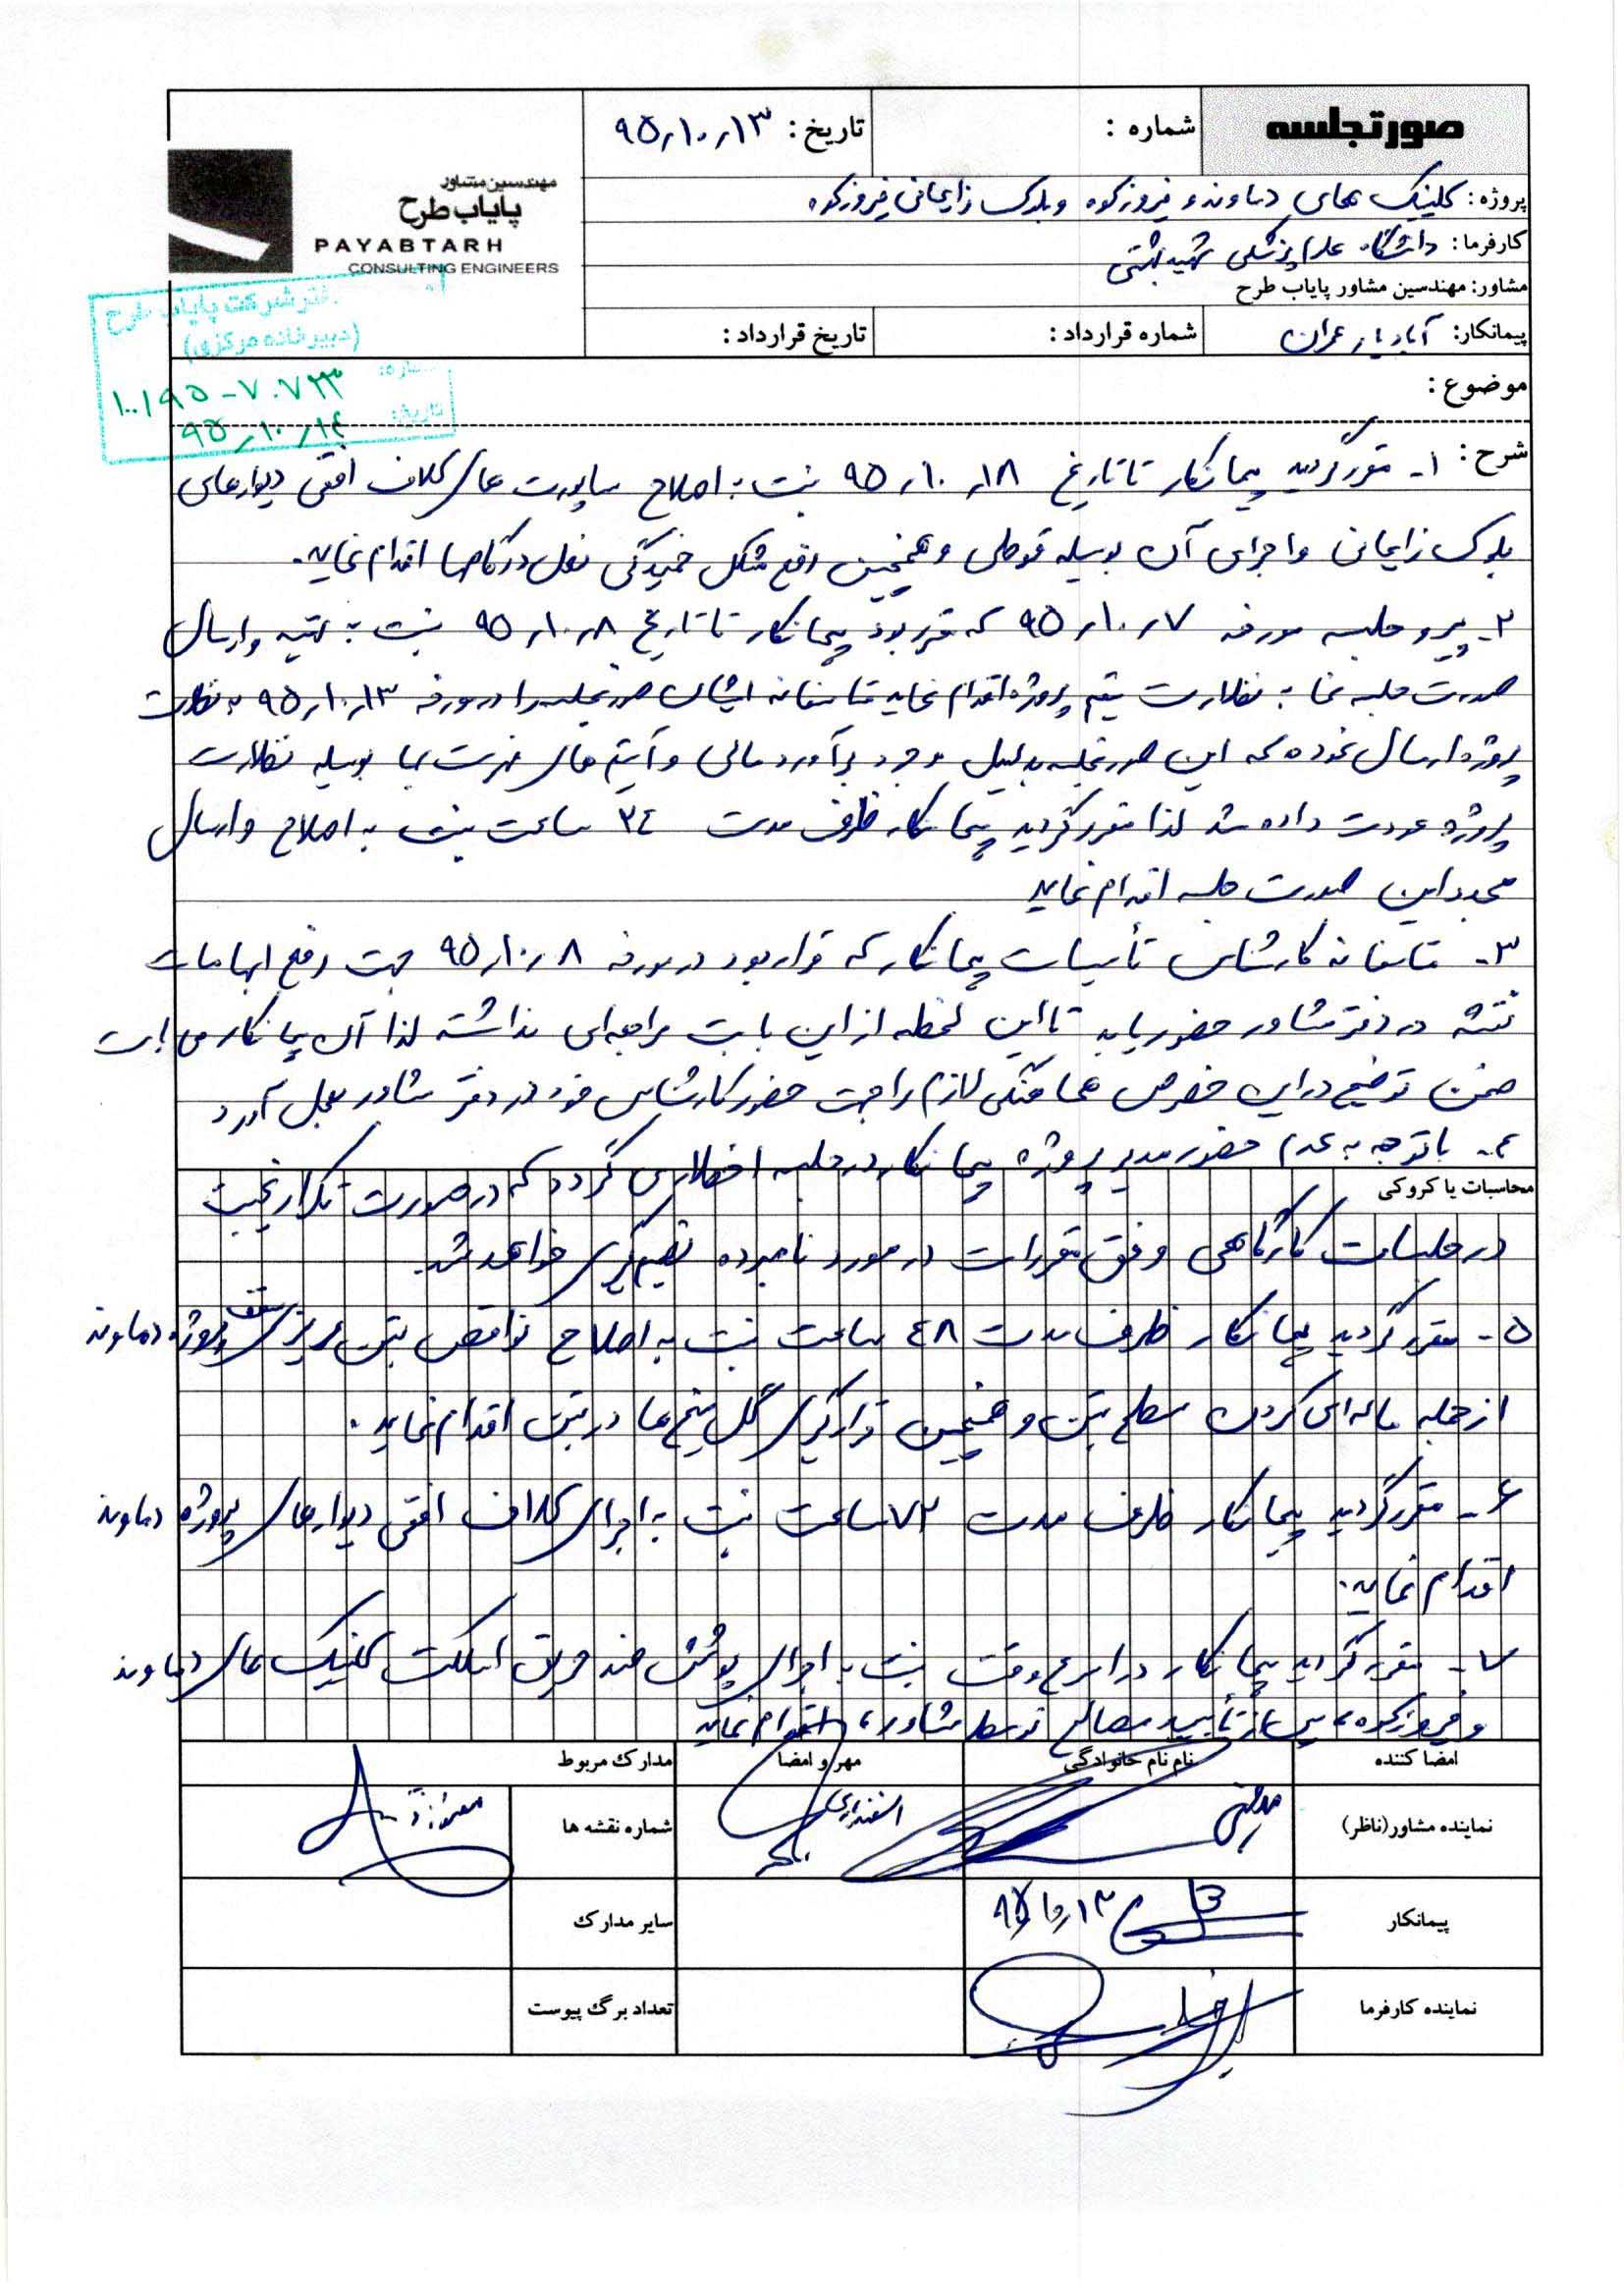 صورتجلسه
شماره :
تاریخ : ۹۵٫۱۰٫۱۳
پروژه: کلینیک های دماوند و فیروزکوه و بلوک زایمانی فیروزکوه
کارفرما: دانشگاه علوم پزشکی شهید بهشتی
مشاور: مهندسین مشاور پایاب طرح
پیمانکار: آبادیار عمران
شماره قرارداد:
تاریخ قرارداد:
مهندسین مشاور
پایاب طرح
PAYABTARH
CONSULTING ENGINEERS
دفتر شرکت پایاب طرح
(دبیرخانه مرکزی)
شماره: ۱۰۰/۹۵-۷۰۷۲۳
تاریخ: ۹۵/۱۰/۱۴
موضوع:
شرح: ۱- مقرر گردید پیمانکار تا تاریخ ۹۵٫۱۰٫۱۸ نسبت به اصلاح ساپورت های کلاف افقی دیوارهای
بلوک زایمانی و اجرای آن بوسیله قوطی و همچنین رفع مشکل خمیدگی نعل درگاهها اقدام نماید.
۲- پیرو جلسه مورخه ۹۵٫۱۰٫۷ که مقرر بود پیمانکار تا تاریخ ۹۵٫۱۰٫۸ نسبت به تهیه و ارسال
صورت جلسه نما به نظارت مقیم پروژه اقدام نماید متاسفانه ایشان صورتجلسه را در مورخه ۹۵٫۱۰٫۱۳ به نظارت
پروژه ارسال نموده که این صورتجلسه بدلیل وجود برآورد مالی و آیتم های فهرست بها بوسیله نظارت
پروژه عودت داده شد لذا مقرر گردید پیمانکار ظرف مدت ۲۴ ساعت نسبت به اصلاح و ارسال
مجدد این صورت جلسه اقدام نماید
۳- متاسفانه کارشناس تأسیسات پیمانکار که قرار بود در مورخه ۹۵٫۱۰٫۸ جهت رفع ابهامات
نقشه در دفتر مشاور حضور یابد تا این لحظه از این بابت مراجعه‌ای نداشته لذا آن پیمانکار می بایست
ضمن توضیح در این خصوص هماهنگی لازم را جهت حضور کارشناس خود در دفتر مشاور بعمل آورد
۴- با توجه به عدم حضور مدیر پروژه پیمانکار در جلسه اخطار می گردد که در صورت تکرار غیبت
محاسبات یا کروکی
در جلسات کارگاهی وفق مقررات در مورد نامبرده تصمیم گیری خواهد شد.
۵- مقرر گردید پیمانکار ظرف مدت ۴۸ ساعت نسبت به اصلاح نواقص بتن ریزی سقف پروژه دماوند
از جمله ماله ای کردن سطح بتن و همچنین قرارگیری گل میخ ها در بتن اقدام نماید.
۶- مقرر گردید پیمانکار ظرف مدت ۷۲ ساعت نسبت به اجرای کلاف افقی دیوارهای پروژه دماوند
اقدام نماید.
۷- مقرر گردید پیمانکار در اسرع وقت نسبت به اجرای پوشش ضد حریق اسکلت کلینیک های دماوند
و فیروزکوه، پس از تأیید مصالح توسط مشاور، اقدام نماید
امضا کننده
نام نام خانوادگی
مهر و امضا
مدارک مربوط
نماینده مشاور(ناظر)
اسفندیاری
شماره نقشه ها
پیمانکار
۹۵٫۱۰٫۱۳
سایر مدارک
نماینده کارفرما
تعداد برگ پیوست